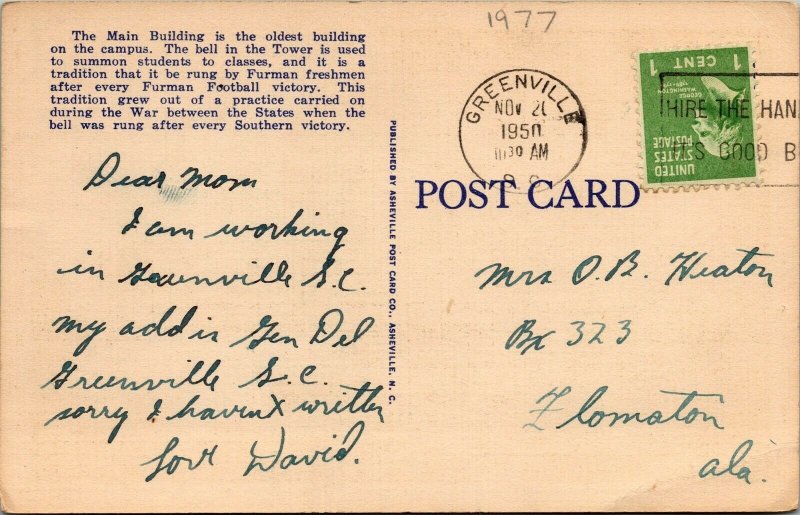 1977
The Main Building is the oldest building
on the campus. The bell in the Tower is used
to summon students to classes, and it is a
tradition that it be rung by Furman freshmen
after every Furman Football victory. This
tradition grew out of a practice carried on
during the War between the States when the
bell was rung after every Southern victory.
Dear Mom
I am working
in Greenville S.C.
my add is Gen Del
Greenville S.C.
sorry I haven't written
Love David.
PUBLISHED BY ASHEVILLE POST CARD CO., ASHEVILLE, N. C.
GREENVILLE
NOV 20
1950
10 30 AM
S. C.
1 CENT 1
GEORGE WASHINGTON
UNITED STATES
POSTAGE
HIRE THE HAN
IT'S GOOD B
POST CARD
Mrs O.B. Heaton
Bx 323
Flomaton
ala.